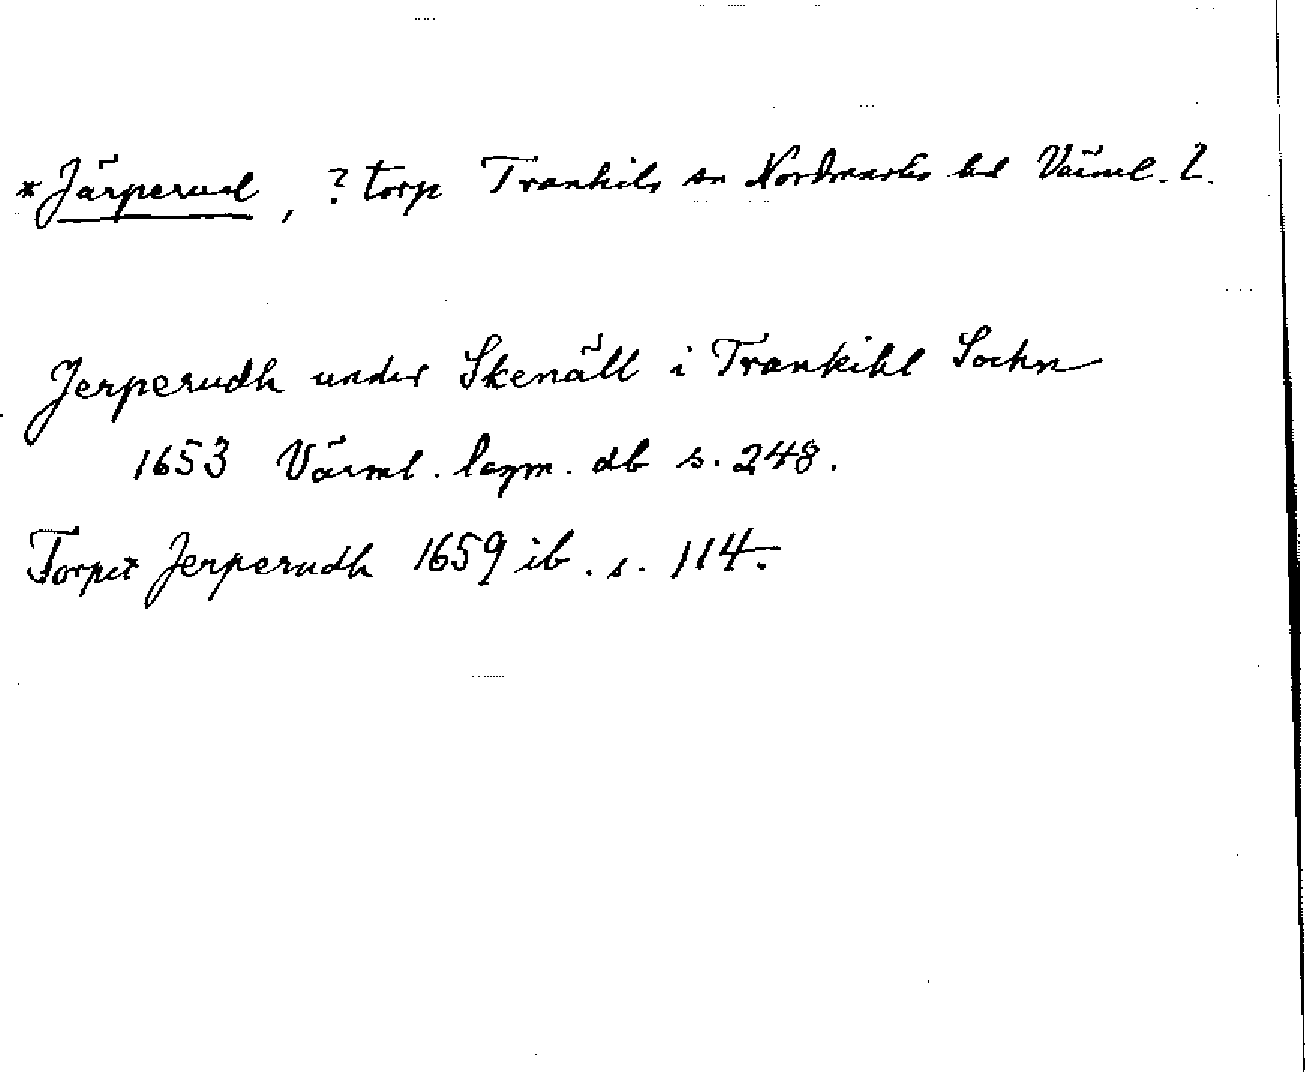 *Järperud, ? torp Trankils sn Nordmarks hd Värml. l.
Jerperudh under Skenäll i Trankihl Sochn
1653 Värml. lagm. db s. 248.
Torpet Jerperudh 1659 ib. s. 114.